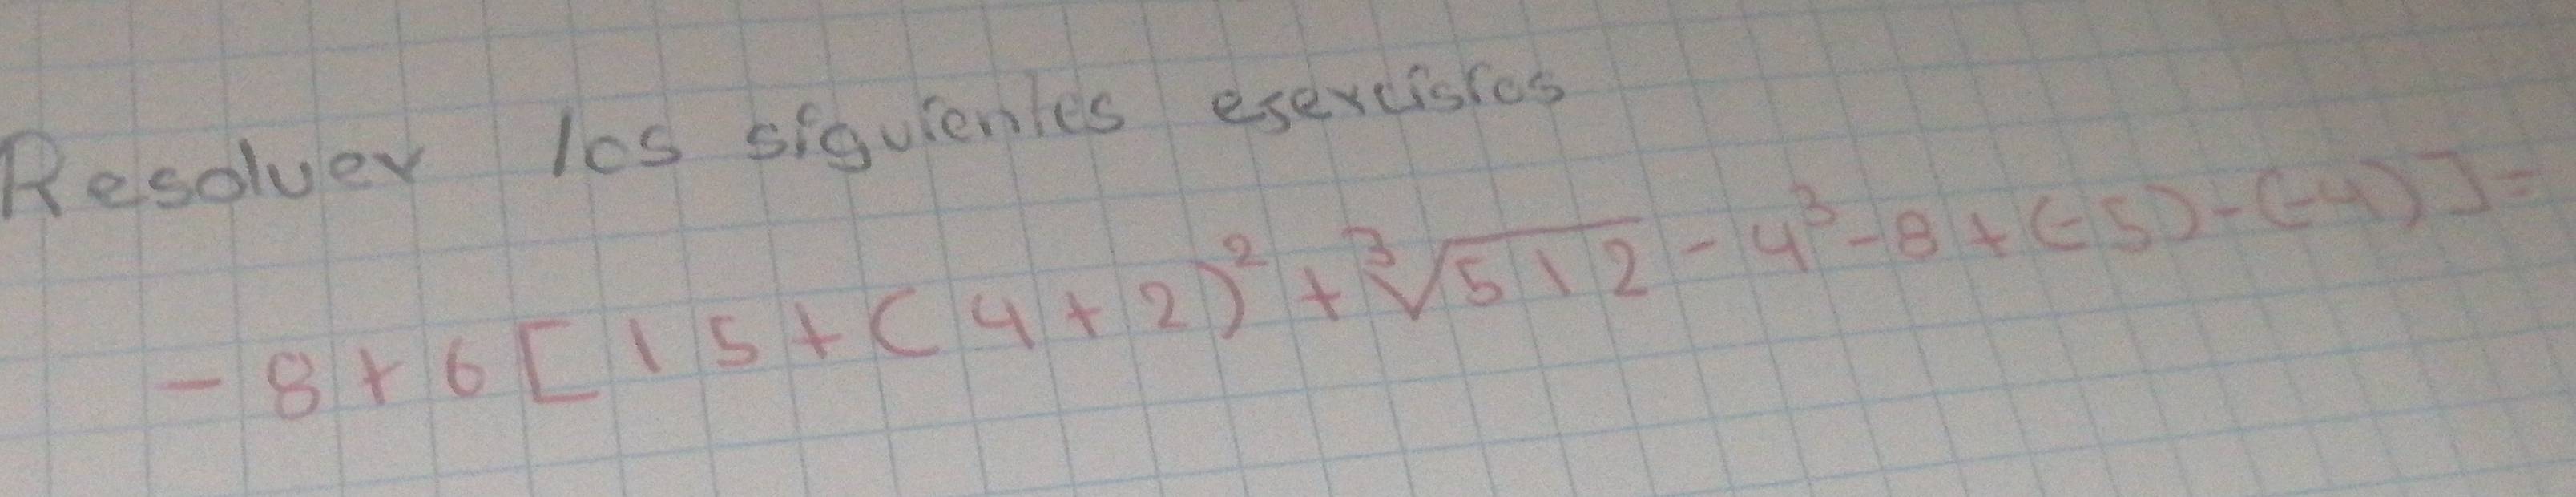 Resolver los siguientes esercisios
- 8 + 6 [ 15 + ( 4 + 2 )² + ³√512 - 4³ - 8 + (-5) - (-4) ] =